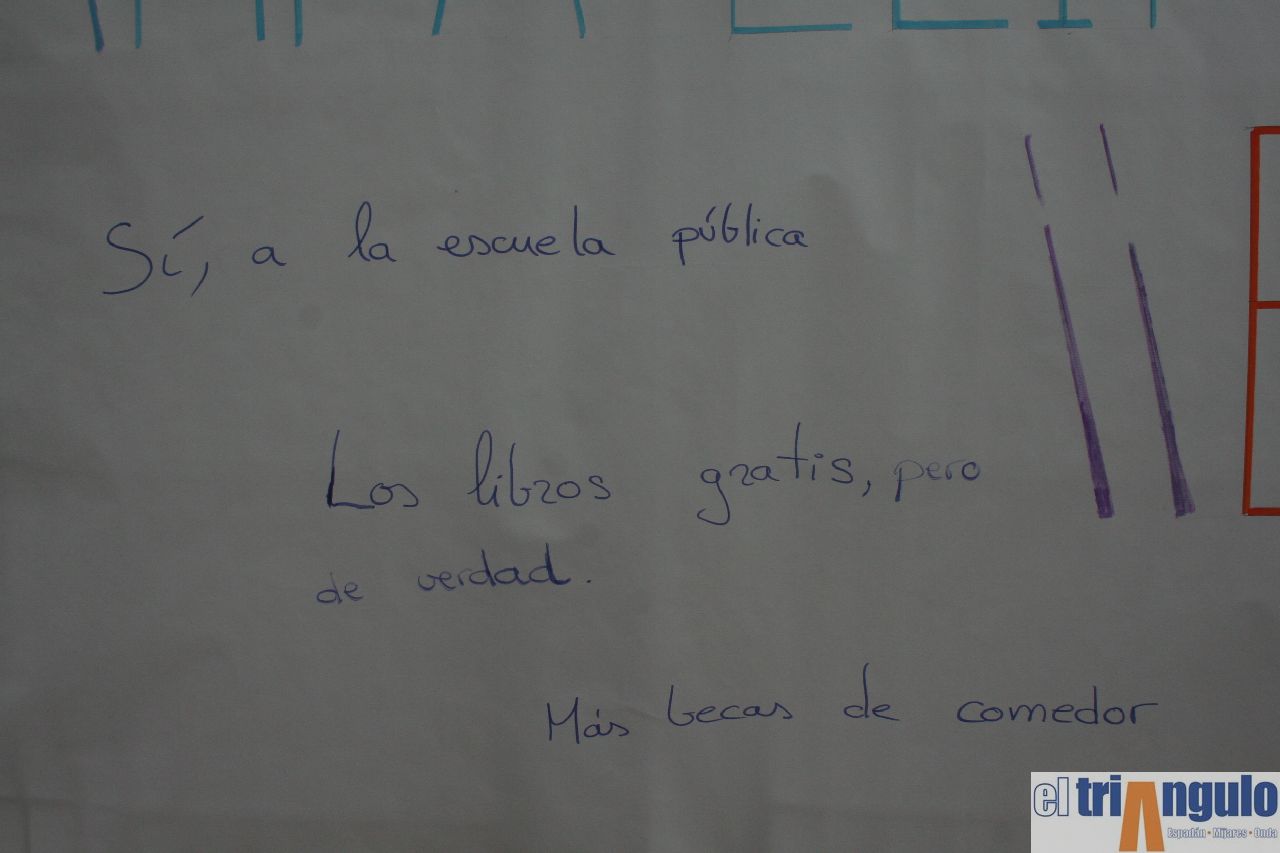 Sí, a la escuela pública
Los libros gratis, pero
de verdad.
Más becas de comedor
el triangulo
Espadán · Mijares · Onda